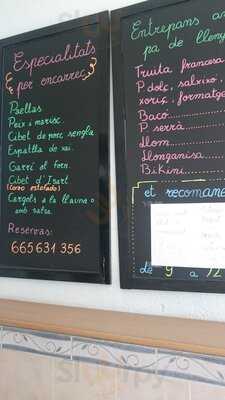 Especialitats
per encàrrec
Paellas
Peix i marisc.
Cibet de porc senglar
Espatlla de xai.
Garrí al forn.
Cibet d'Isart
(Corzo estofado)
Cargols a la llauna o
amb salsa.
Reservas:
665631356
Entrepans amb
pa de lleny
Truita francesa
P. dolç, salxixo,
xoriç, formatge
Bacó
P. serrà
Llom
Llonganisa
Bikini
et recomane
de 9 a 12